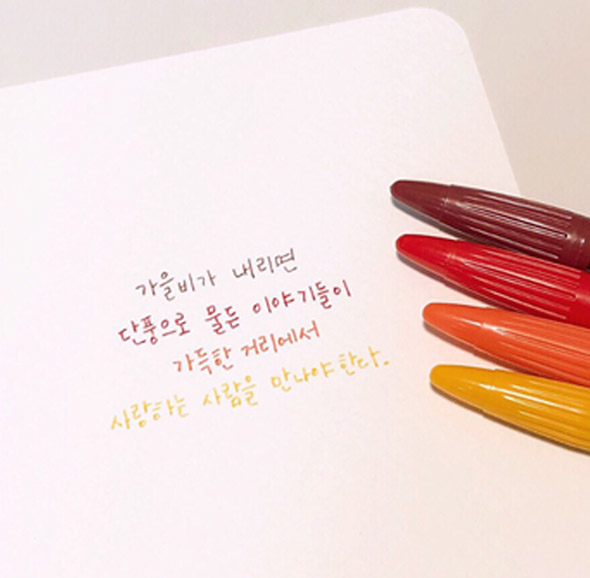 가을비가 내리면
단풍으로 물든 이야기들이
가득한 거리에서
사랑하는 사람을 만나야한다.